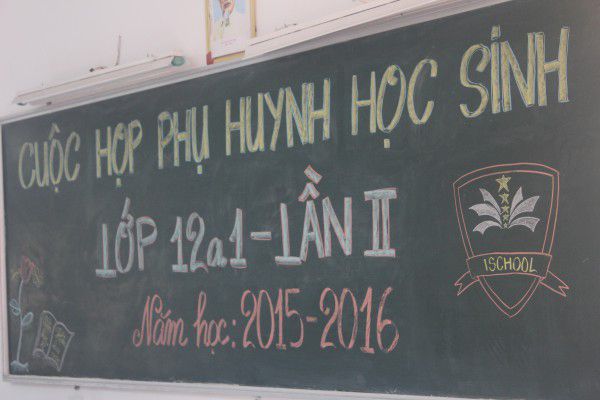 CUỘC HỌP PHỤ HUYNH HỌC SINH
LỚP 12a1 - LẦN II
Năm học: 2015-2016
ISCHOOL